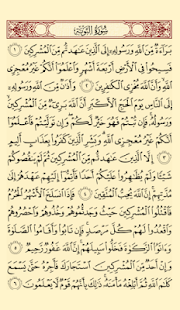 سُورَةُ التَّوْبَةِ
بَرَآءَةٌ مِّنَ ٱللَّهِ وَرَسُولِهِۦٓ إِلَى ٱلَّذِينَ عَٰهَدتُّم مِّنَ ٱلْمُشْرِكِينَ ١
فَسِيحُوا۟ فِى ٱلْأَرْضِ أَرْبَعَةَ أَشْهُرٍ وَٱعْلَمُوٓا۟ أَنَّكُمْ غَيْرُ مُعْجِزِى
ٱللَّهِ وَأَنَّ ٱللَّهَ مُخْزِى ٱلْكَٰفِرِينَ ٢ وَأَذَٰنٌ مِّنَ ٱللَّهِ وَرَسُولِهِۦٓ
إِلَى ٱلنَّاسِ يَوْمَ ٱلْحَجِّ ٱلْأَكْبَرِ أَنَّ ٱللَّهَ بَرِىٓءٌ مِّنَ ٱلْمُشْرِكِينَ
وَرَسُولُهُۥ فَإِن تُبْتُمْ فَهُوَ خَيْرٌ لَّكُمْ وَإِن تَوَلَّيْتُمْ فَٱعْلَمُوٓا۟
أَنَّكُمْ غَيْرُ مُعْجِزِى ٱللَّهِ وَبَشِّرِ ٱلَّذِينَ كَفَرُوا۟ بِعَذَابٍ أَلِيمٍ
٣ إِلَّا ٱلَّذِينَ عَٰهَدتُّم مِّنَ ٱلْمُشْرِكِينَ ثُمَّ لَمْ يَنقُصُوكُمْ
شَيْـًٔا وَلَمْ يُظَٰهِرُوا۟ عَلَيْكُمْ أَحَدًا فَأَتِمُّوٓا۟ إِلَيْهِمْ عَهْدَهُمْ إِلَىٰ
مُدَّتِهِمْ إِنَّ ٱللَّهَ يُحِبُّ ٱلْمُتَّقِينَ ٤ فَإِذَا ٱنسَلَخَ ٱلْأَشْهُرُ ٱلْحُرُمُ
فَٱقْتُلُوا۟ ٱلْمُشْرِكِينَ حَيْثُ وَجَدتُّمُوهُمْ وَخُذُوهُمْ وَٱحْصُرُوهُمْ
وَٱقْعُدُوا۟ لَهُمْ كُلَّ مَرْصَدٍ فَإِن تَابُوا۟ وَأَقَامُوا۟ ٱلصَّلَوٰةَ
وَءَاتَوُا۟ ٱلزَّكَوٰةَ فَخَلُّوا۟ سَبِيلَهُمْ إِنَّ ٱللَّهَ غَفُورٌ رَّحِيمٌ ٥
وَإِنْ أَحَدٌ مِّنَ ٱلْمُشْرِكِينَ ٱسْتَجَارَكَ فَأَجِرْهُ حَتَّىٰ يَسْمَعَ
كَلَٰمَ ٱللَّهِ ثُمَّ أَبْلِغْهُ مَأْمَنَهُۥ ذَٰلِكَ بِأَنَّهُمْ قَوْمٌ لَّا يَعْلَمُونَ ٦